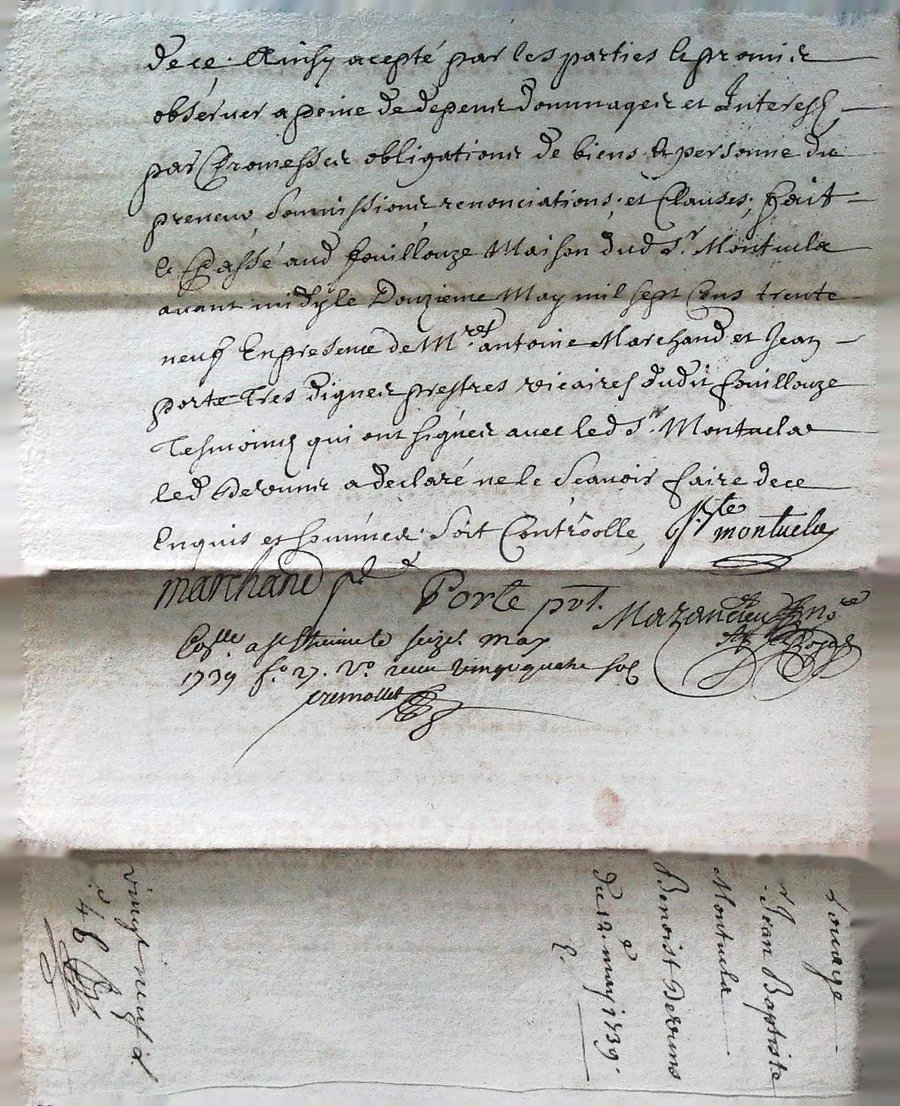 de ce. Ainsy acepté par les parties le promir
observer a peine de depens dommages et Interest,
par Promesses obligations de biens & personne du
preneur soumissions renonciations, et Clauses, fait
& Passé aud fouillouze Maison dud Sr. Montucla
avant midy le Douzieme May mil sept Cens trente
neuf En presence de Mres antoine Marchand et Jean
porte Tres dignes prestres vicaires dudit fouillouze
Tesmoins qui ont signés avec led Sr. Montucla
led Derouns a declaré ne le Scavoir faire de ce
Enquis et sommés. Soit Controollé,
montucla
marchand
Porte pbt. Mazancieu nore
Royal
a St Etienne le seize may
1739 fo. 27. vo. receu vingt quatre sol
cremollet
Louage
Jean Baptiste
Montucla
Benoist Derouns
du 12e may 1739.
vingt neuf